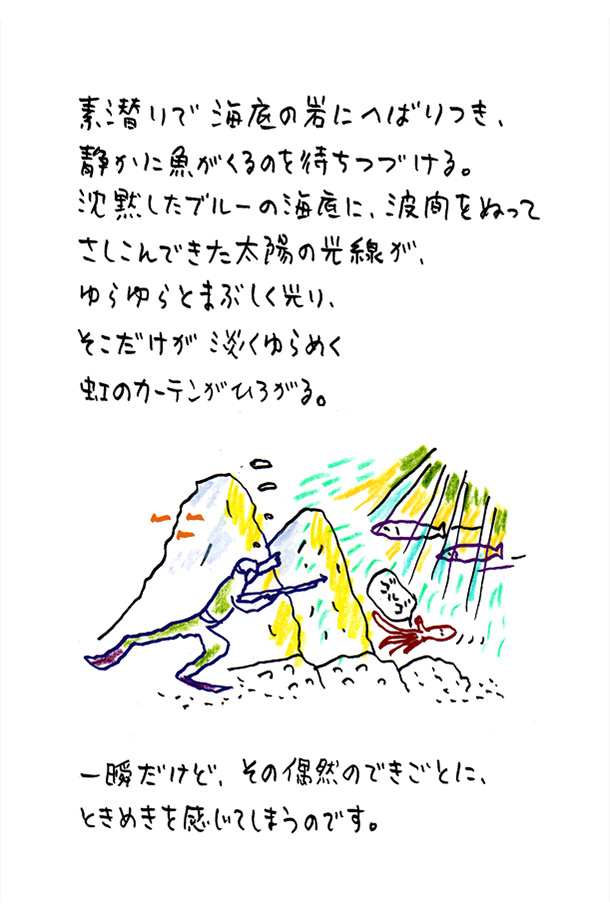 素潜りで海底の岩にへばりつき、
静かに魚がくるのを待ちつづける。
沈黙したブルーの海底に、波間をぬって
さしこんできた太陽の光線が、
ゆらゆらとまぶしく光り、
そこだけが淡くゆらめく
虹のカーテンがひろがる。
一瞬だけど、その偶然のできごとに、
ときめきを感じてしまうのです。